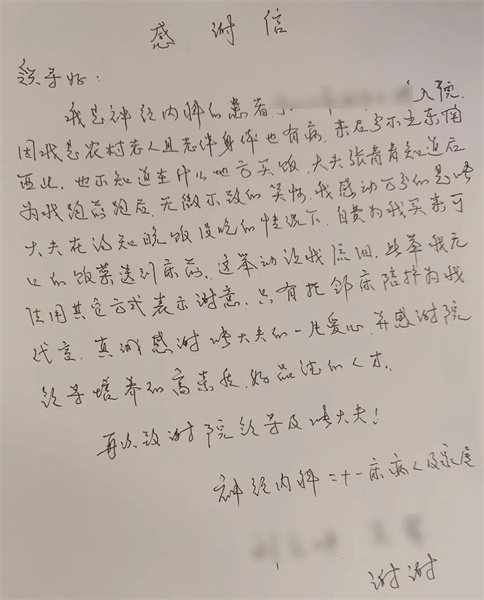 感谢信
领导好：
我是神经内科的患者，入院.
因我是农村老人且老伴身体也有病，来后分不出东南
西北，也不知道在什么地方买饭，大夫张青青知道后
为我跑前跑后，无微不致的关怀，我感动万分的是
大夫在得知晚饭没吃的情况下，自费为我买来可
口的饭菜送到床前，这举动没我流泪，此举我无
法用其它方式表示谢意，只有托邻床陪护为我
代言，真诚感谢 大夫的一片爱心，并感谢院
领导培养的高素质，好品德的人才。
再次致谢院领导及 大夫！
神经内科二十一床病人及家属
谢谢